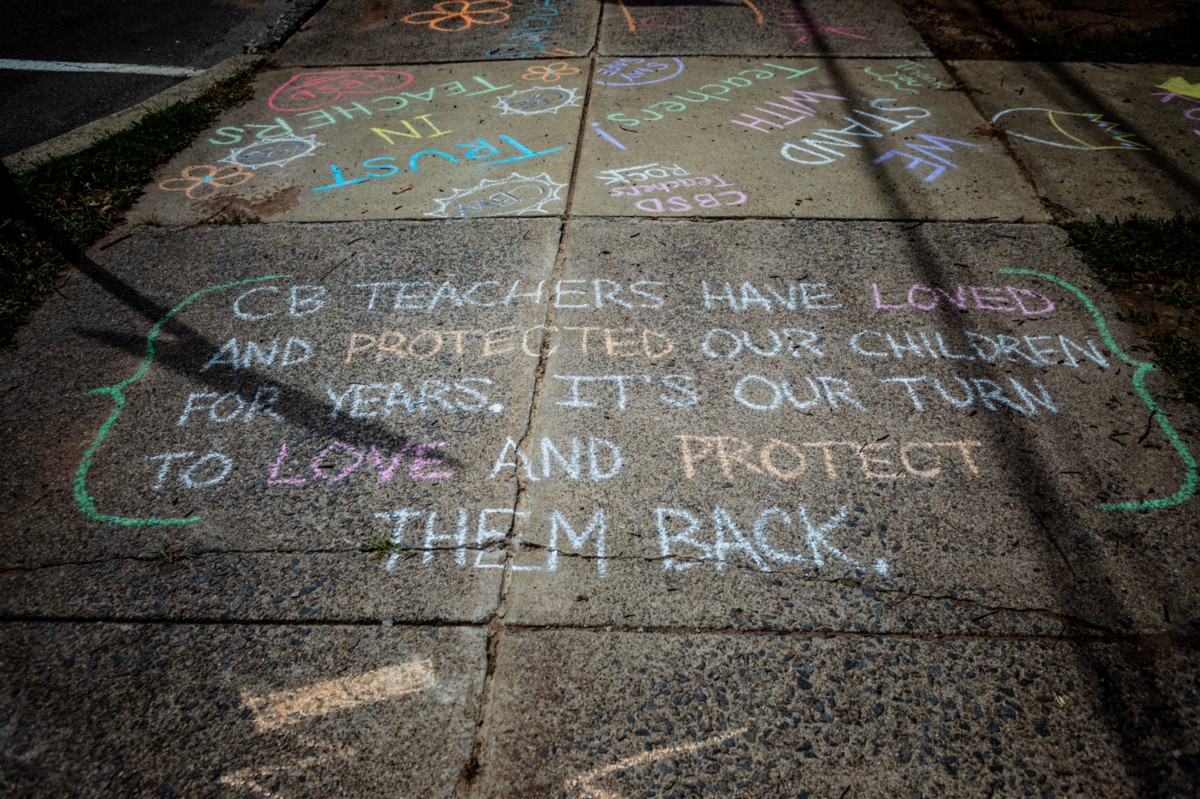 TEACHERS
IN
TRUST
CBW
Teachers
WITH
STAND
WE
CBSD
Teachers
ROCK
CB TEACHERS HAVE LOVED
AND PROTECTED OUR CHILDREN
FOR YEARS. IT'S OUR TURN
TO LOVE AND PROTECT
THEM BACK.